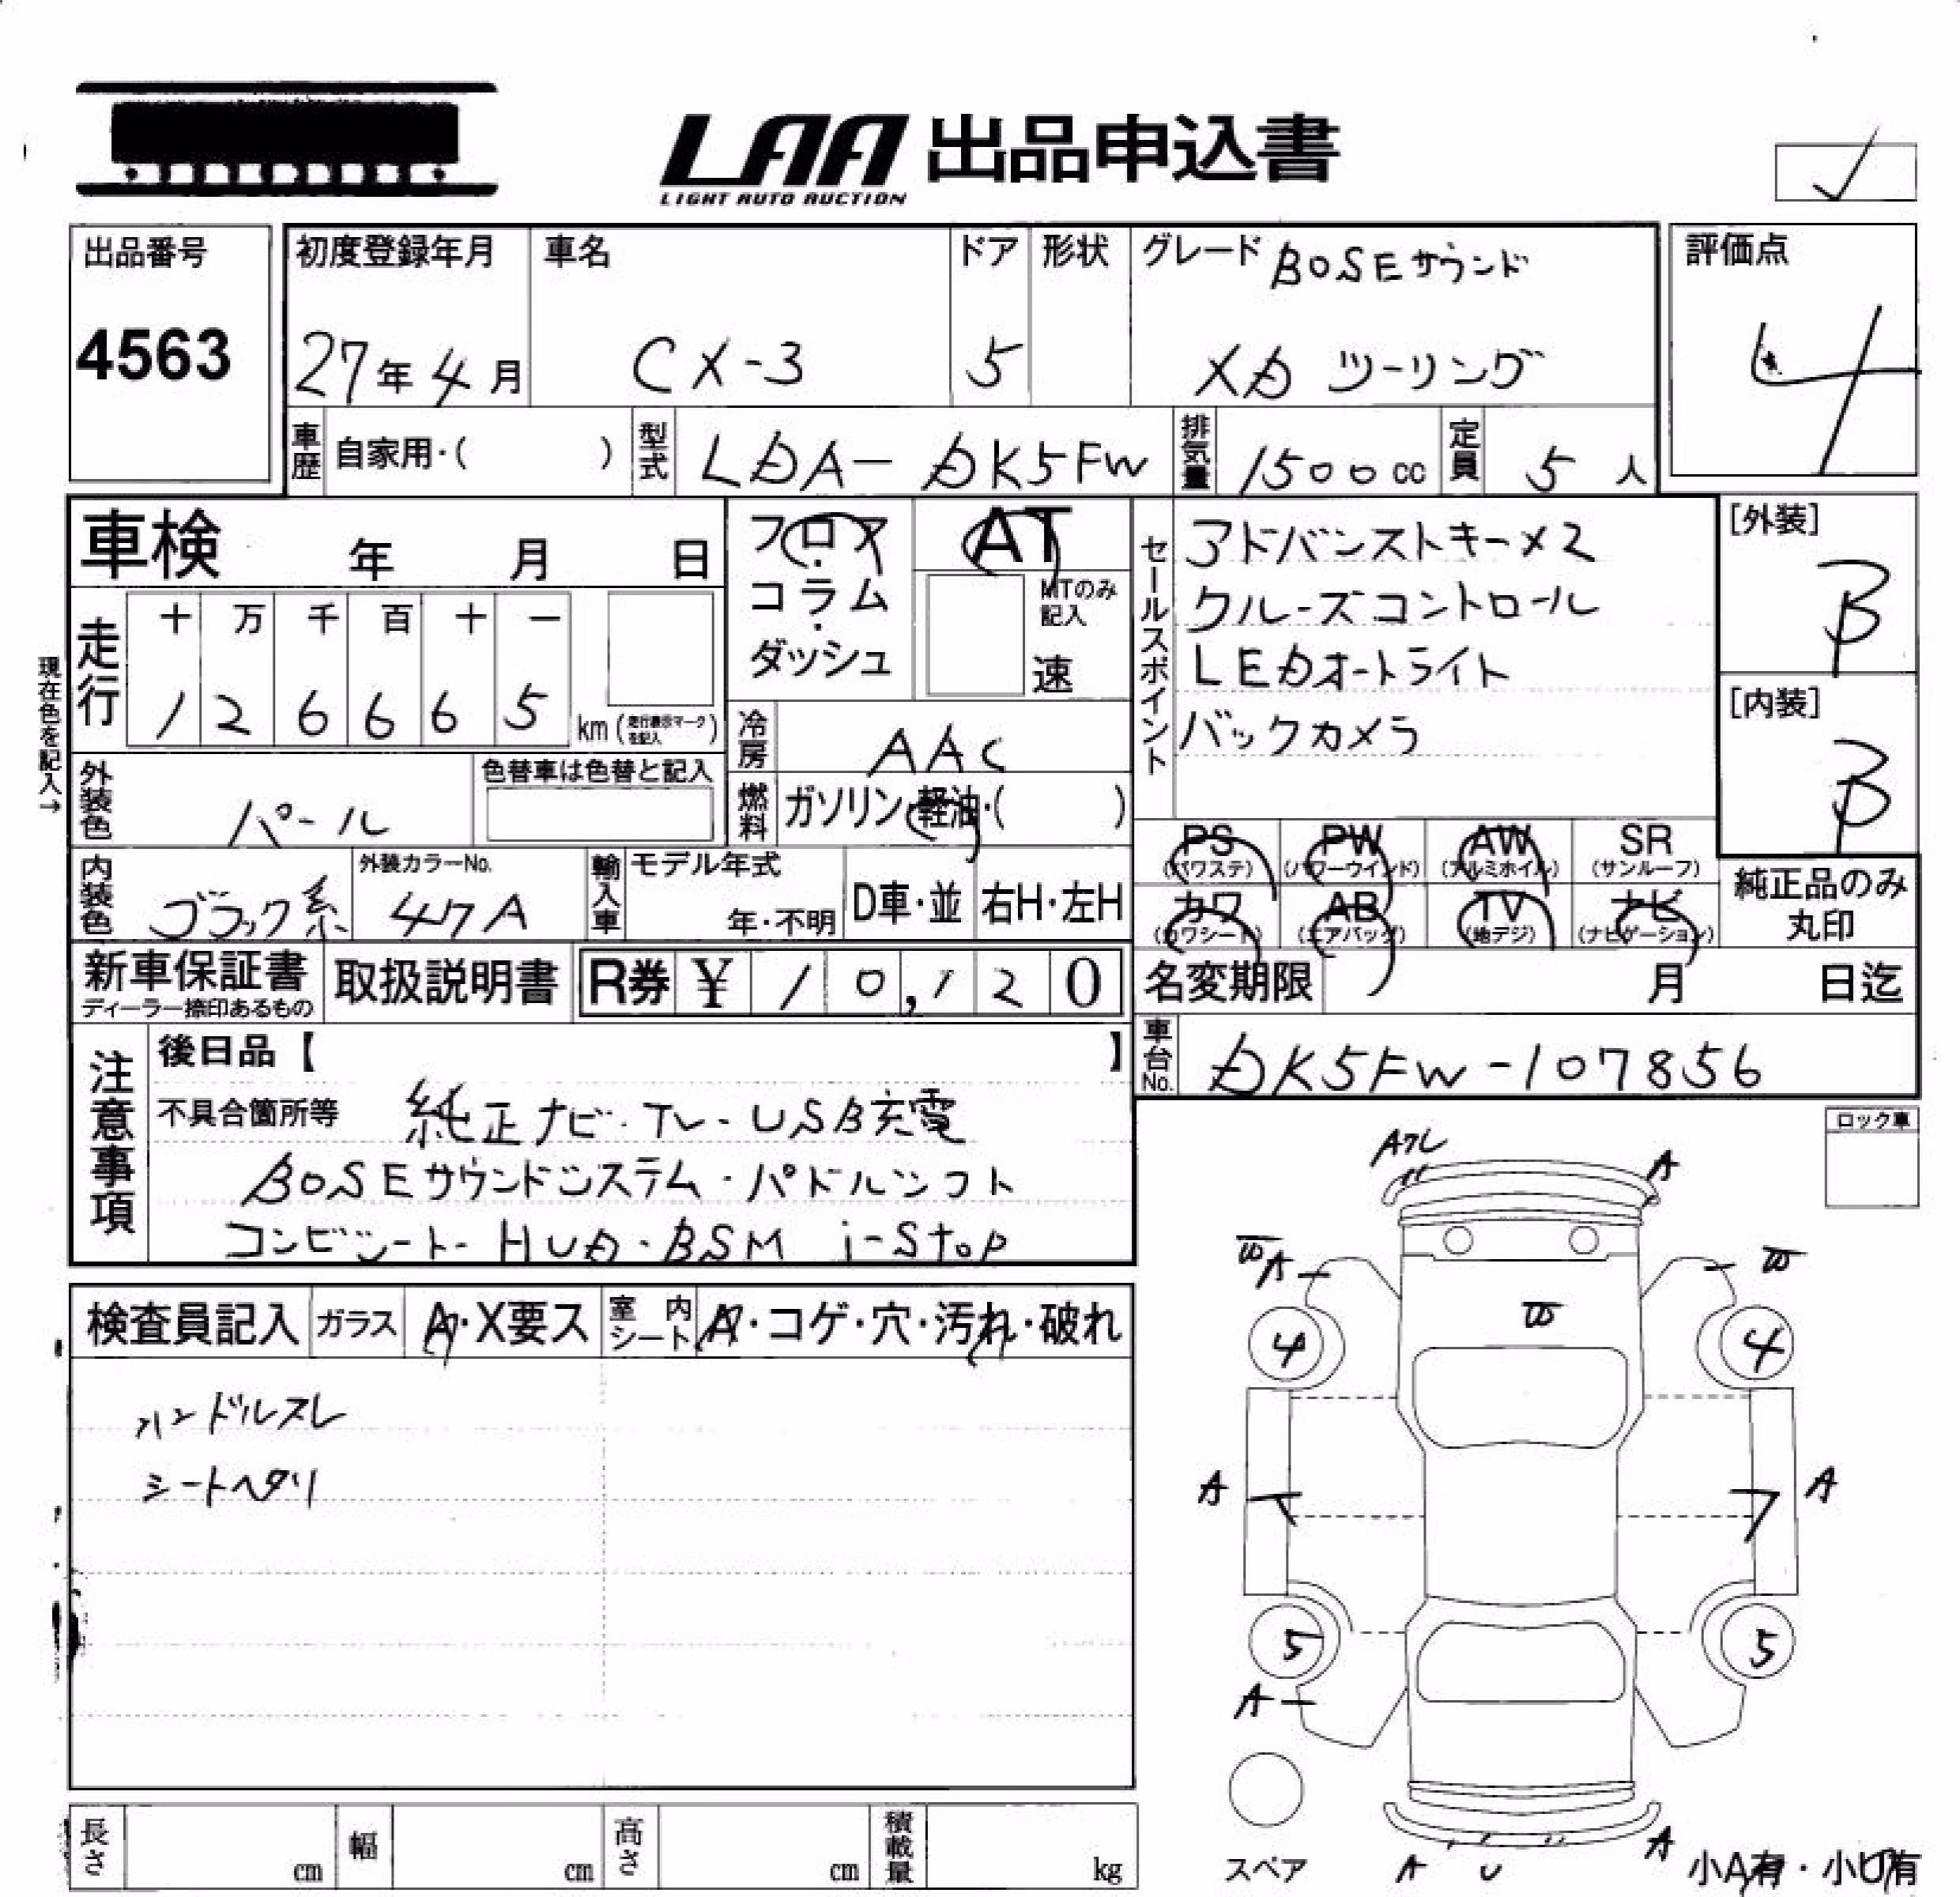 LAA 出品申込書
LIGHT AUTO AUCTION
出品番号
4563
初度登録年月
27年4月
車名
CX-3
ドア
5
形状
グレード BOSEサウンド
XD ツーリング
評価点
4
車歴 自家用・( )
型式 LDA-DK5FW
排気量 1500cc
定員 5人
車検 年 月 日
フロア・コラム・ダッシュ
AT
MTのみ記入
速
セールスポイント
アドバンストキー×2
クルーズコントロール
LEDオートライト
バックカメラ
[外装]
B
[内装]
B
現在色を記入→
走行
十 万 千 百 十 一
1 2 6 6 6 5 km (走行表示マークを記入)
冷房 AAC
外装色 パール
色替車は色替と記入
燃料 ガソリン・軽油・( )
PS (パワステ) PW (パワーウインド) AW (アルミホイル) SR (サンルーフ)
カワ (カワシート) AB (エアバッグ) TV (地デジ) ナビ (ナビゲーション)
純正品のみ丸印
内装色 ブラック系
外装カラーNo. 47A
輸入車 モデル年式 年・不明 D車・並 右H・左H
新車保証書
ディーラー捺印あるもの
取扱説明書
R券 ¥ 10,120
名変期限 月 日迄
車台No. DK5FW-107856
注意事項
後日品【 】
不具合箇所等 純正ナビ・TV・USB充電
BOSEサウンドシステム・パドルシフト
コンビシート・HUD・BSM i-stop
ロック車
検査員記入 ガラス A・X要ス 室内シート A・コゲ・穴・汚れ・破れ
ハンドルスレ
シートヘタリ
A A
W A W
W
4 4
A A
5 5
A
スペア
A U A
小A有・小U有
長さ cm 幅 cm 高さ cm 積載量 kg